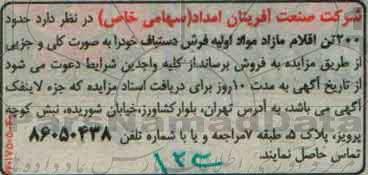 شرکت صنعت آفرینان امداد(سهامی خاص) در نظر دارد حدود
۲۰۰تن اقلام مازاد مواد اولیه فرش دستباف خودرا به صورت کلی و جزیی
از طریق مزایده به فروش برساند.از کلیه واجدین شرایط دعوت می شود
از تاریخ آگهی به مدت ۱۰روز برای دریافت اسناد مزایده که جزء لاینفک
آگهی می باشد، به آدرس تهران، بلوارکشاورز،خیابان شوریده، نبش کوچه
پرویز، پلاک ۵، طبقه ۷مراجعه و یا با شماره تلفن ۸۶۰۵۰۴۳۸
تماس حاصل نمایند.